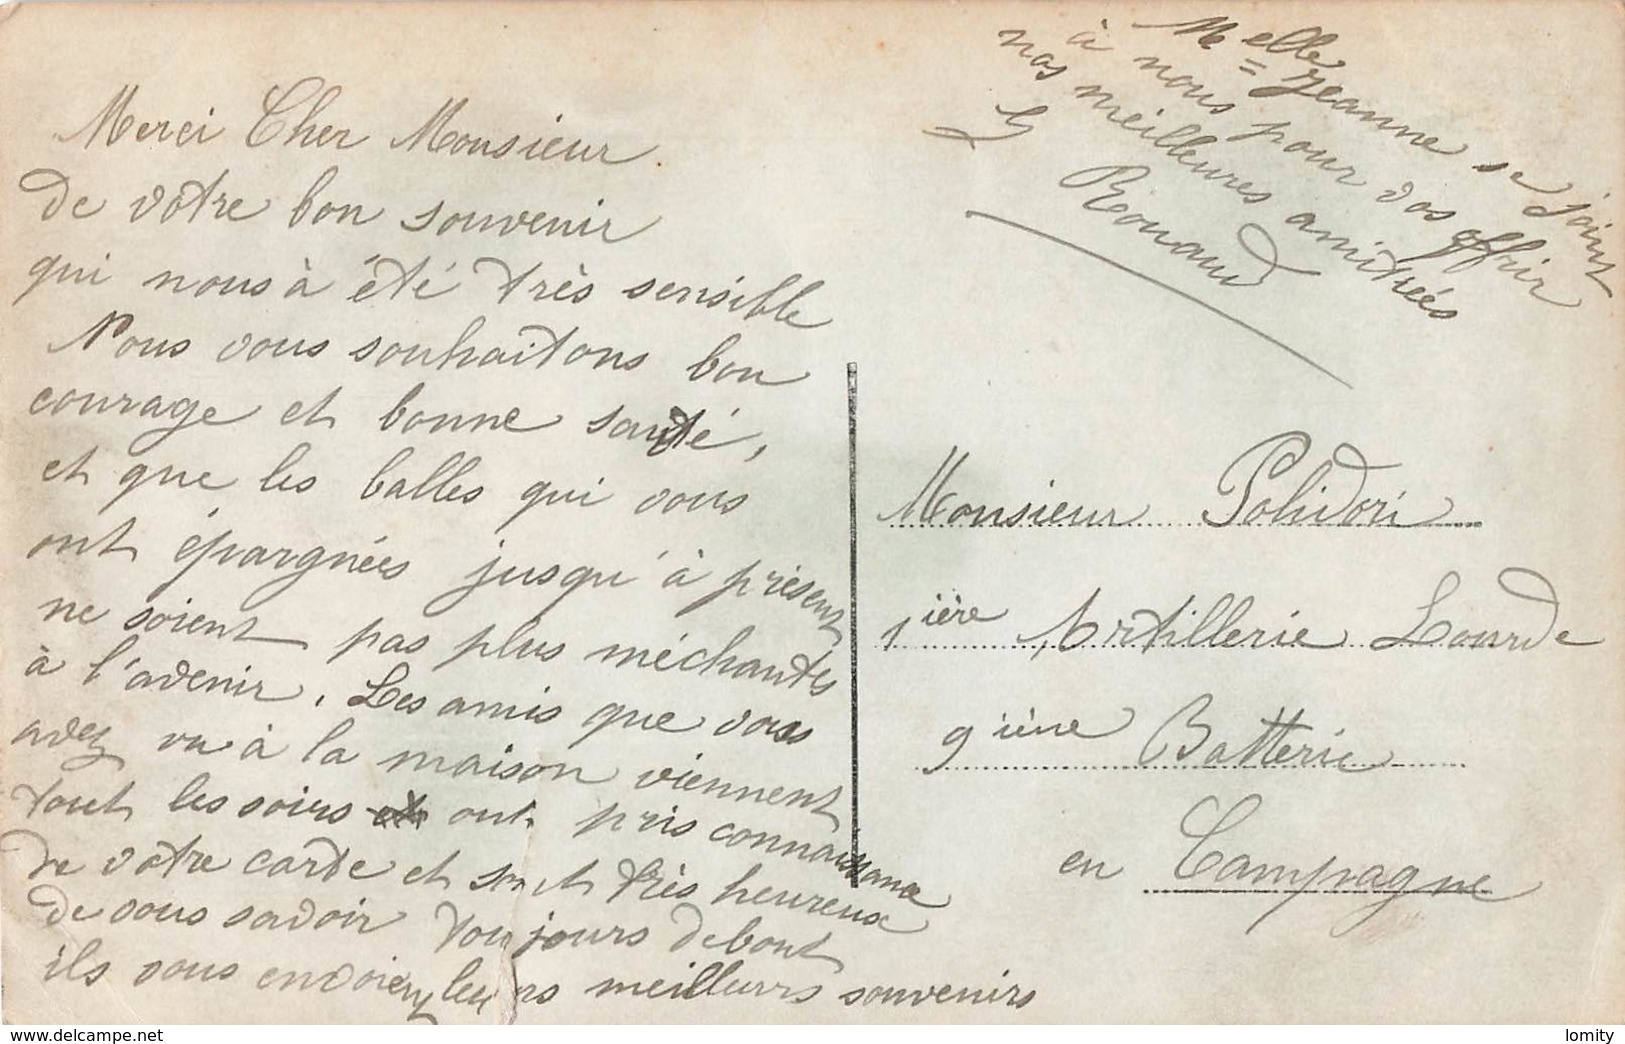 Merci Cher Monsieur
de votre bon souvenir
qui nous à été très sensible
Nous vous souhaitons bon
courage et bonne santé,
et que les balles qui vous
ont épargnées jusqu'à présent
ne soient pas plus méchantes
à l'avenir. Les amis que vous
avez vu à la maison viennent
tout les soirs et ont pris connaissance
de votre carte et sont très heureux
de vous savoir toujours debout
ils vous envoient leurs meilleurs souvenirs
Melle Jeanne se joint
à nous pour vos offrir
nos meilleures amitiées
G Rouaud
Monsieur Polidori
1ière Artillerie Lourde
9ième Batterie
en Campagne
delcampe.net
lomity